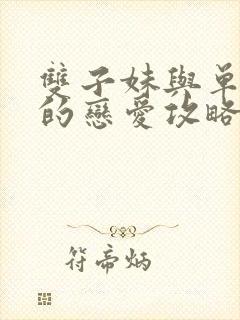 雙子妹與單
的戀愛攻略
符帝炳